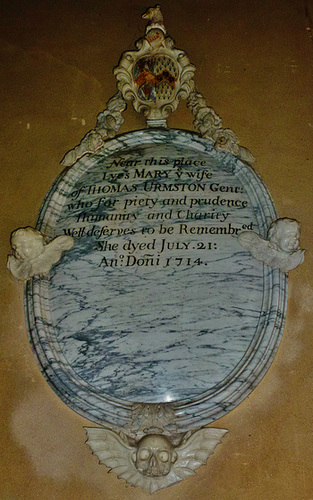 Near this place
Lyes MARY yͤ wife
of THOMAS URMSTON Gent:
who for piety and prudence
Humanity and Charity
Well deſerves to be Remembr.ed
She dyed JULY. 21:
An.º Dom̃i 1714.